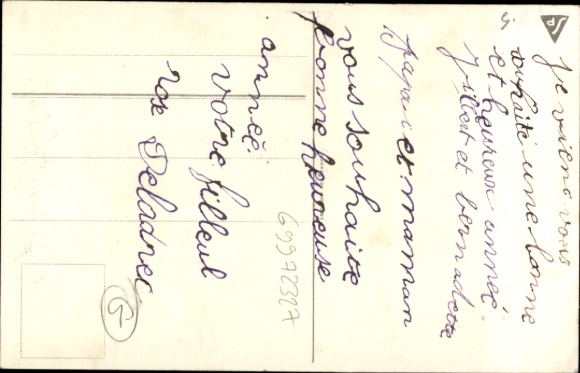 je viens vous
souhaite une bonne
et heureuse anneé
Jilbert et bernadette
papa et maman
vous souhaite
bonne heureuse
anneé
votre filleul
rose Deladrec
69972327
5